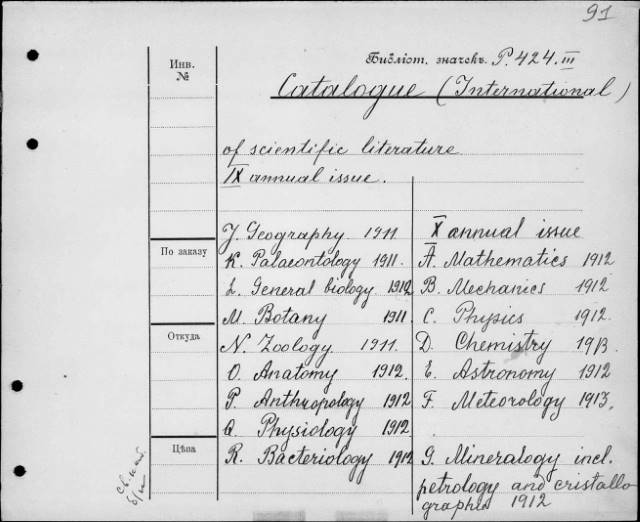 91
Инв.
№
Библіот. значекъ. P. 424. III
Catalogue (International)
of scientific literature
IX annual issue.
J. Geography 1911.
K. Palaeontology 1911.
L. General biology 1912
M. Botany 1911.
N. Zoology 1911.
O. Anatomy 1912.
P. Anthropology 1912
Q. Physiology 1912
R. Bacteriology 1912
X annual issue
A. Mathematics 1912
B. Mechanics 1912
C. Physics 1912.
D. Chemistry 1913.
E. Astronomy 1912
F. Meteorology 1913.
G. Mineralogy incl.
petrology and cristallo
graphie 1912
По заказу
Откуда
Цѣна